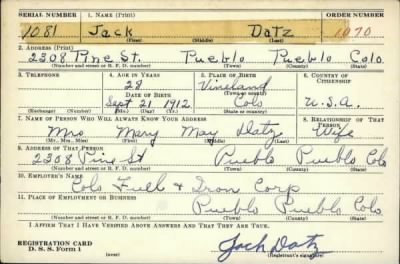 SERIAL NUMBER 1. NAME (Print) ORDER NUMBER
1081 Jack Datz 1070
(First) (Middle) (Last)
2. ADDRESS (Print)
2308 Pine St. Pueblo Pueblo Colo
(Number and street or R. F. D. number) (Town) (County) (State)
3. TELEPHONE 4. AGE IN YEARS 5. PLACE OF BIRTH 6. COUNTRY OF CITIZENSHIP
28 Vineland
DATE OF BIRTH (Town or county)
Sept 21 1912 Colo U.S.A.
(Exchange) (Number) (Mo.) (Day) (Yr.) (State or country)
7. NAME OF PERSON WHO WILL ALWAYS KNOW YOUR ADDRESS 8. RELATIONSHIP OF THAT PERSON
Mrs Mary May Datz Wife
(Mr., Mrs., Miss) (First) (Middle) (Last)
9. ADDRESS OF THAT PERSON
2308 Pine St Pueblo Pueblo Colo
(Number and street or R. F. D. number) (Town) (County) (State)
10. EMPLOYER'S NAME
Colo Fuel & Iron Corp
11. PLACE OF EMPLOYMENT OR BUSINESS
Pueblo Pueblo Colo
(Number and street or R. F. D. number) (Town) (County) (State)
I AFFIRM THAT I HAVE VERIFIED ABOVE ANSWERS AND THAT THEY ARE TRUE.
REGISTRATION CARD
D. S. S. Form 1 (over) Jack Datz
(Registrant's signature)